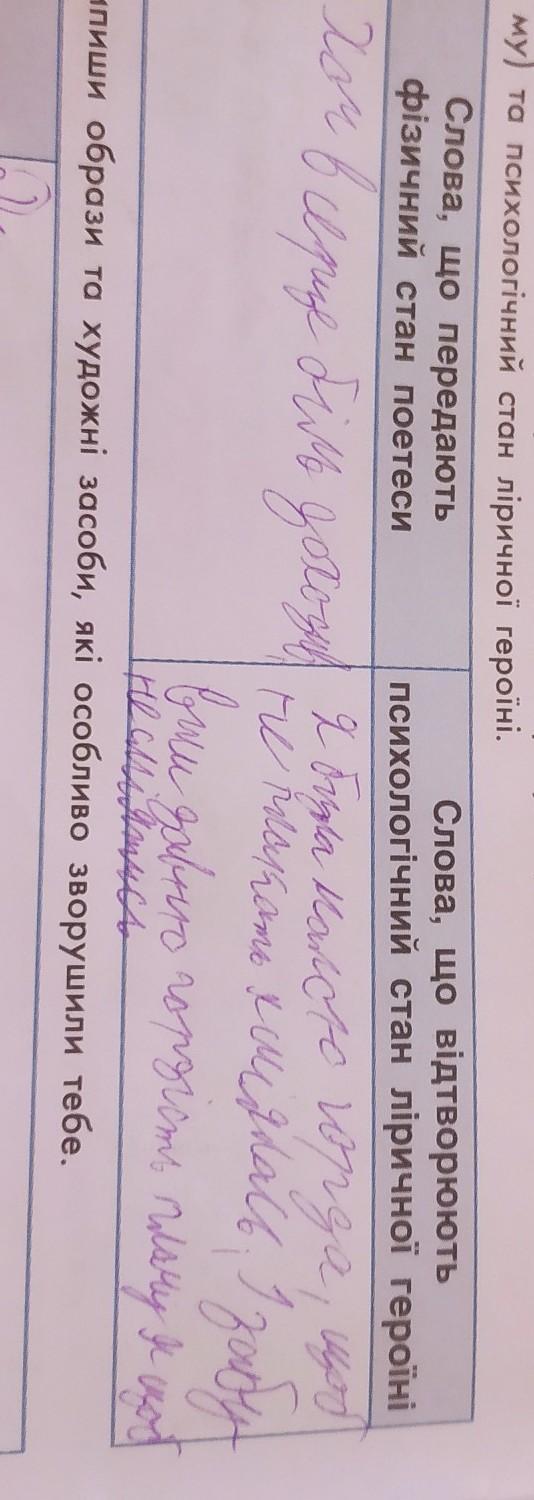 му) та психологічний стан ліричної героїні.
Слова, що передають
фізичний стан поетеси
Слова, що відтворюють
психологічний стан ліричної героїні
Хоч в серце біль
Я була малою горда, щоб
не плакать я сміялась, І забу
вши давню гордість плачу я щоб
не сміятись
пиши образи та художні засоби, які особливо зворушили тебе.